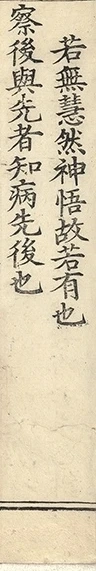 若無慧然神悟故若有也
察後與先者知病先後也